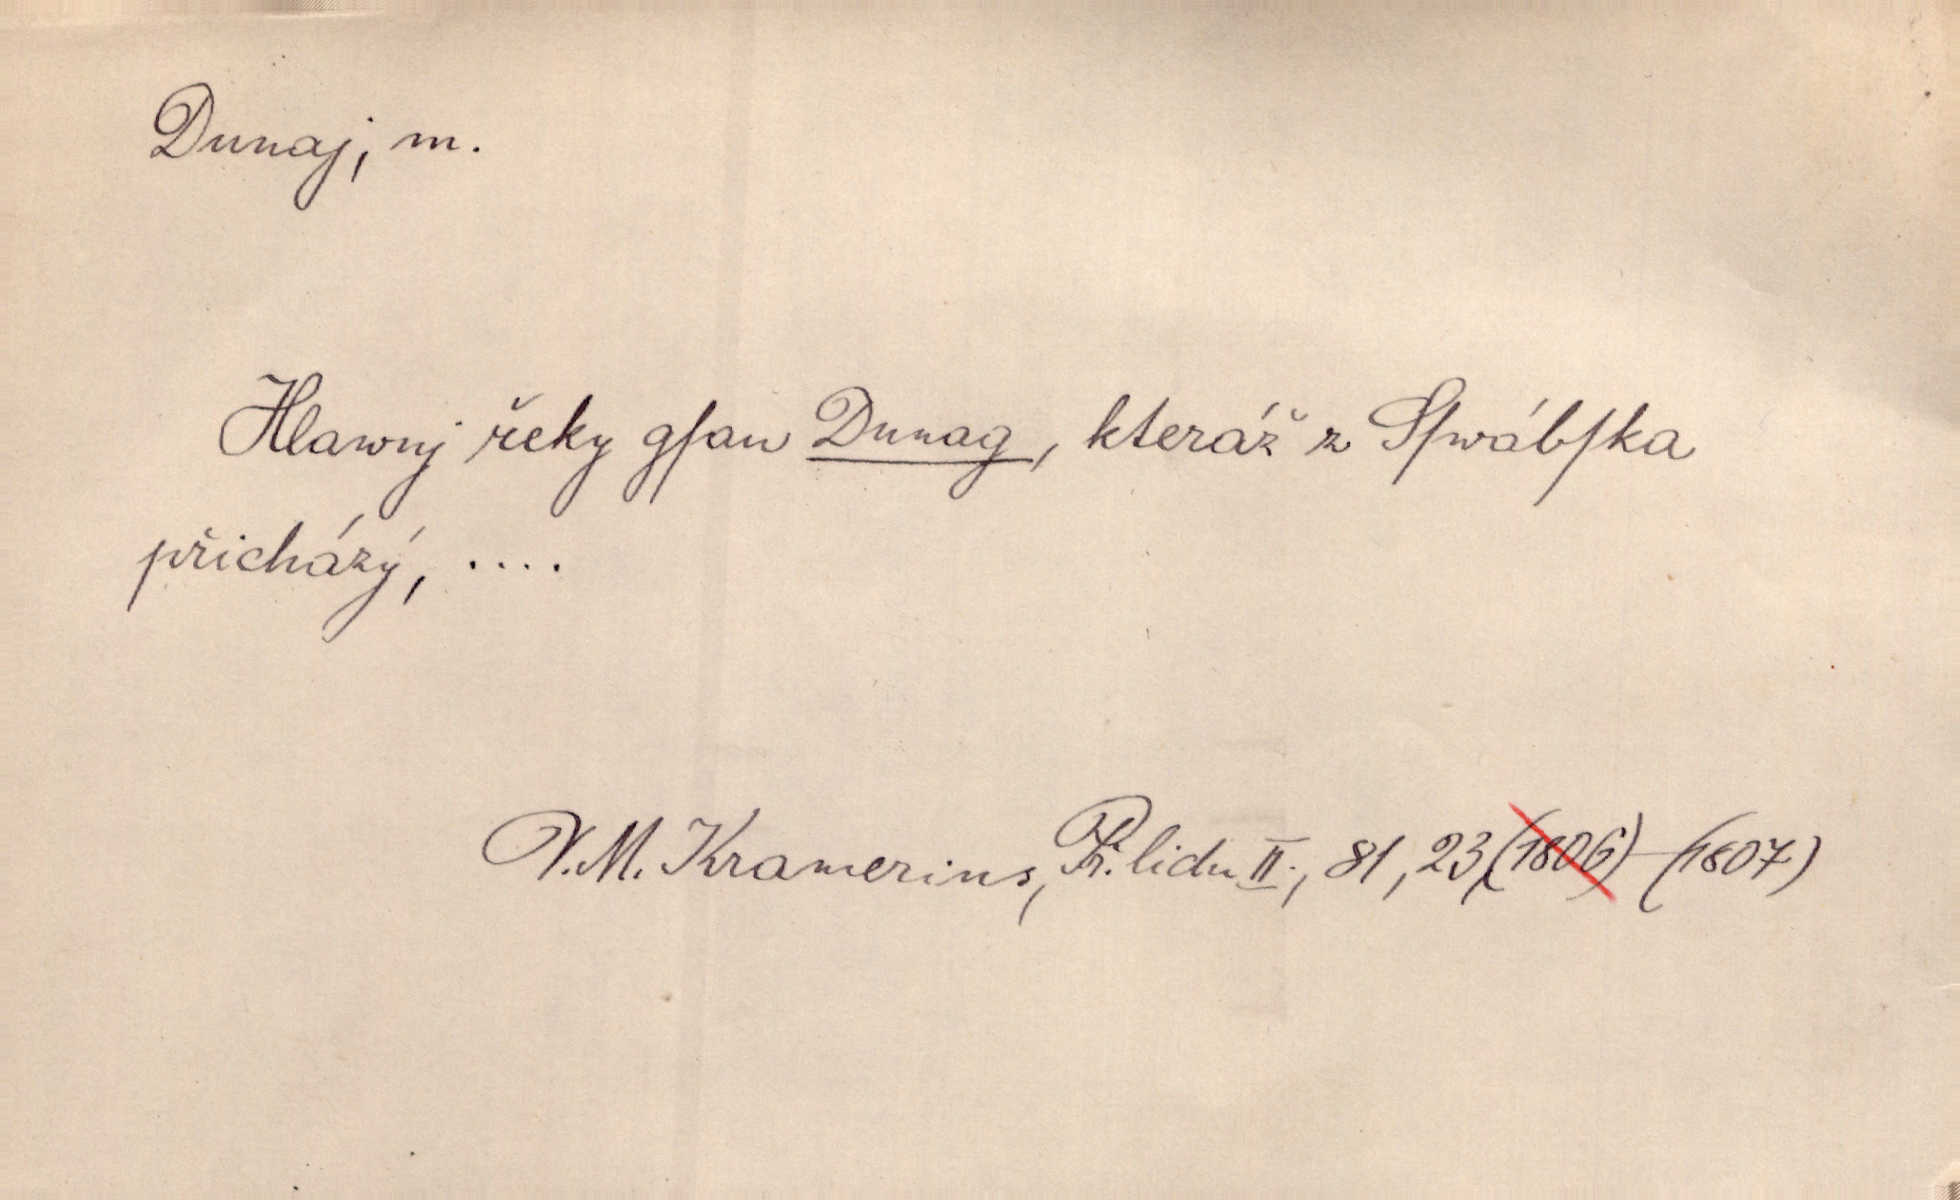 Dunaj, m.
Hlawnj řeky gſau Dunag, kteráž z Sſwábſka
přicházý, ....
V. M. Kramerius, Př. lidu II., 81, 23 (1806) (1807)